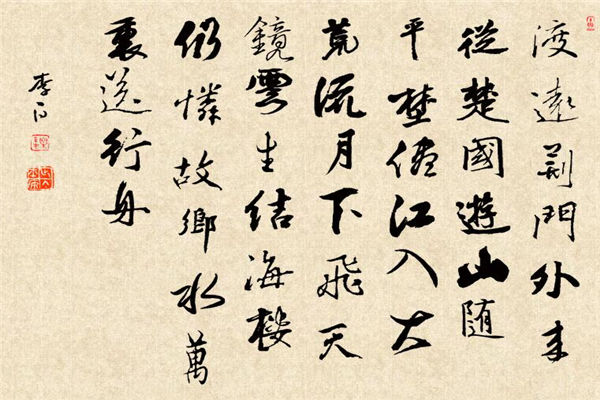 渡遠荊門外来
從楚國遊山随
平埜儘江入大
荒流月下飛天
鏡雲生結海楼
仍憐故鄉水萬
裏送行舟
李白